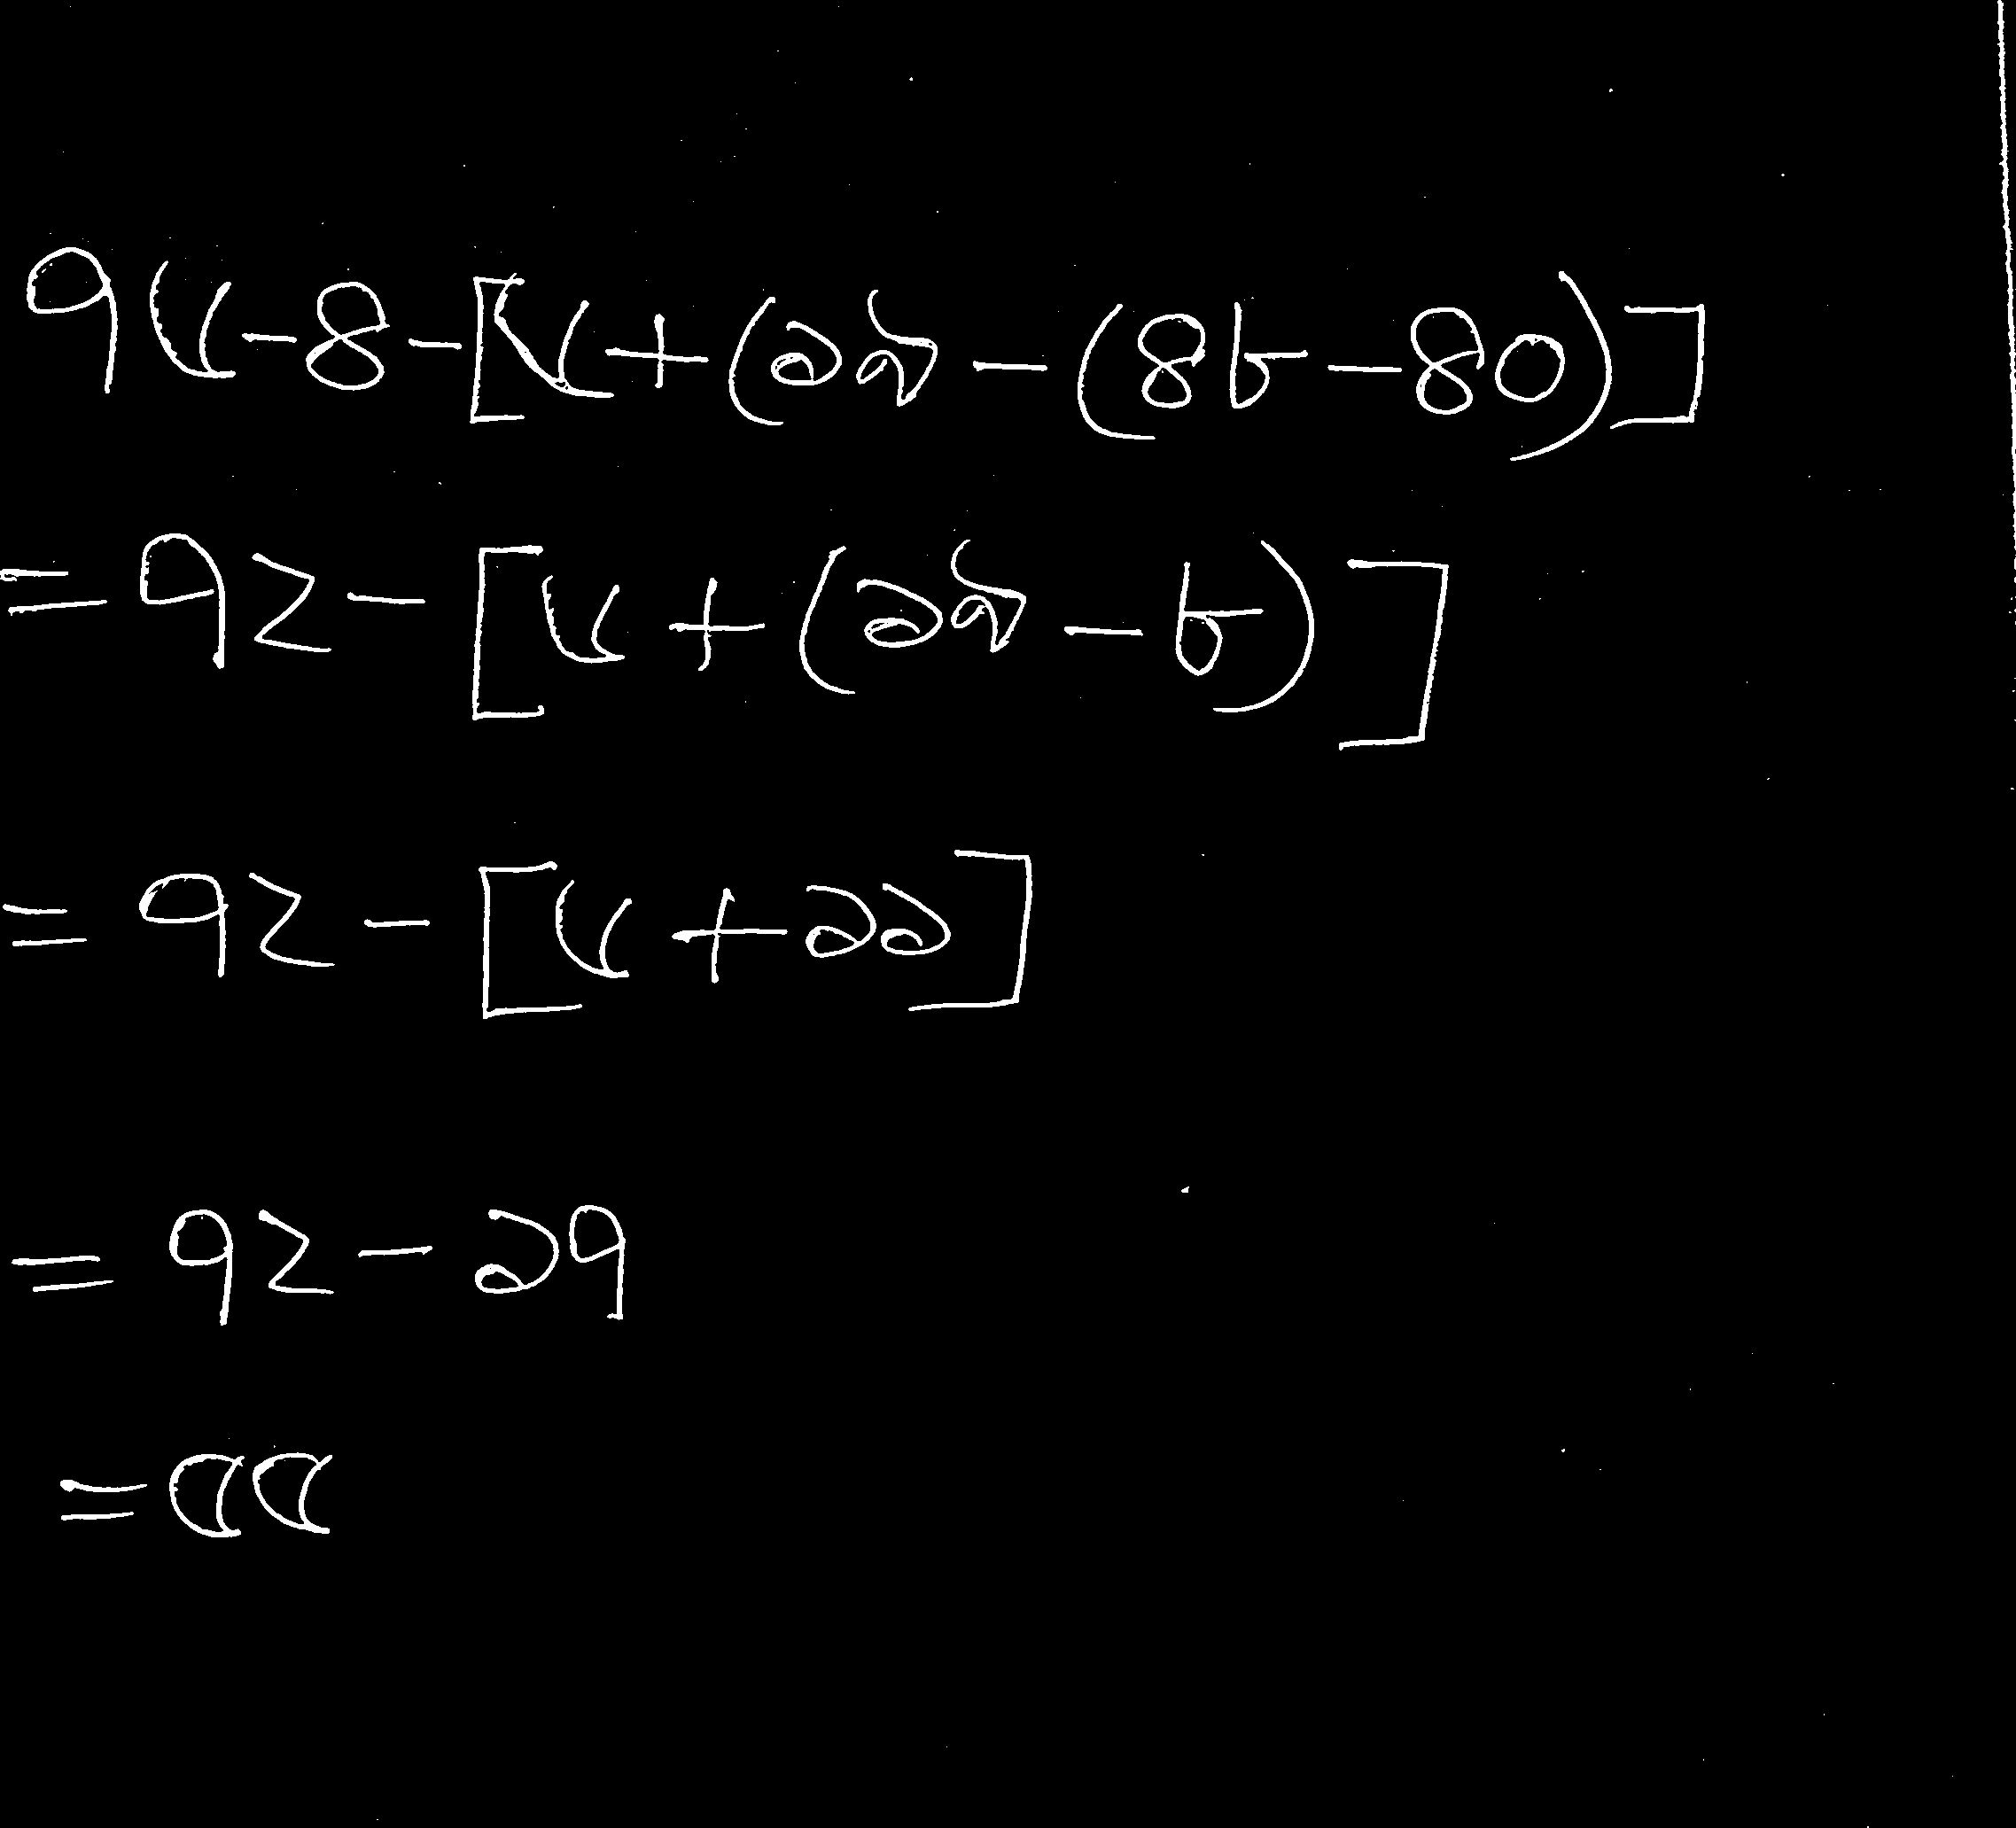 ৭৬-৪-[৬+(১৯-(৪৮-৪০)]
=৭২-[৬+(১৯-৮)]
=৭২-[৬+১১]
=৭২-১৭
=৫৫